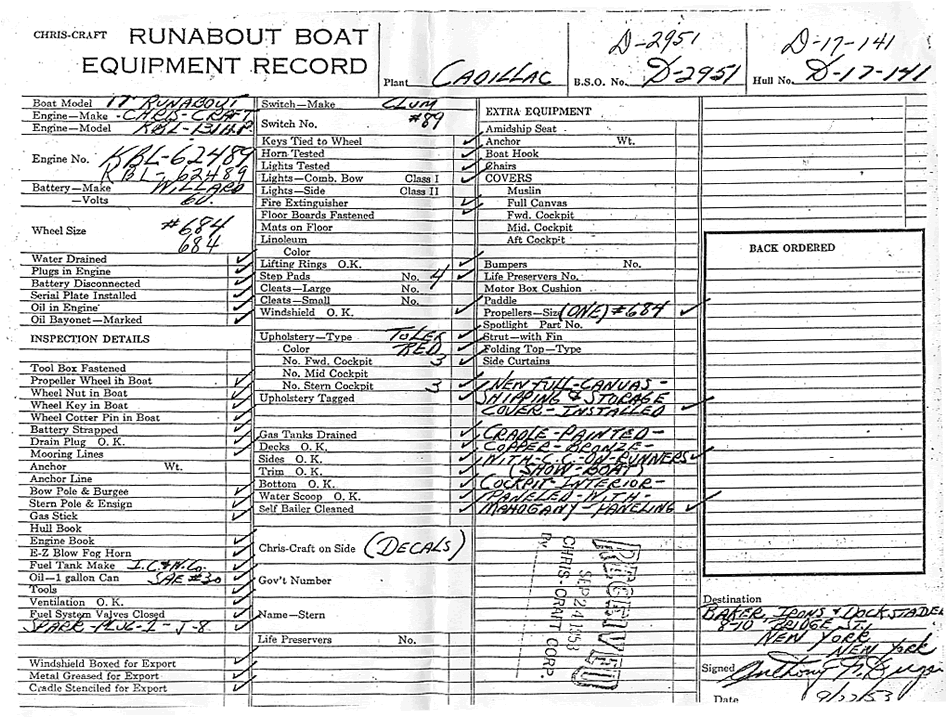 CHRIS-CRAFT RUNABOUT BOAT
EQUIPMENT RECORD
Plant CADILLAC
D-2951
B.S.O. No. D-2951
D-17-141
Hull No. D-17-141
Boat Model 17' RUNABOUT
Engine—Make CHRIS-CRAFT
Engine—Model KBL-131 H.P.
Engine No. KBL-62489
KBL-62489
Battery—Make WILLARD
—Volts 6V.
Wheel Size #684
684
Water Drained
Plugs in Engine
Battery Disconnected
Serial Plate Installed
Oil in Engine
Oil Bayonet—Marked
INSPECTION DETAILS
Tool Box Fastened
Propeller Wheel in Boat
Wheel Nut in Boat
Wheel Key in Boat
Wheel Cotter Pin in Boat
Battery Strapped
Drain Plug O. K.
Mooring Lines
Anchor Wt.
Anchor Line
Bow Pole & Burgee
Stern Pole & Ensign
Gas Stick
Hull Book
Engine Book
E-Z Blow Fog Horn
Fuel Tank Make I.C.&W.Co.
Oil—1 gallon Can SAE #30
Tools
Ventilation O. K.
Fuel System Valves Closed
SPARK-PLUG-1-J-8
Windshield Boxed for Export
Metal Greased for Export
Cradle Stenciled for Export
Switch—Make CLUM
Switch No. #89
Keys Tied to Wheel
Horn Tested
Lights Tested
Lights—Comb. Bow Class I
Lights—Side Class II
Fire Extinguisher
Floor Boards Fastened
Mats on Floor
Linoleum
Color
Lifting Rings O.K.
Step Pads No. 4
Cleats—Large No.
Cleats—Small No.
Windshield O. K.
Upholstery—Type TOLEX
Color RED
No. Fwd. Cockpit 3
No. Mid Cockpit
No. Stern Cockpit 3
Upholstery Tagged
Gas Tanks Drained
Decks O. K.
Sides O. K.
Trim O. K.
Bottom O. K.
Water Scoop O. K.
Self Bailer Cleaned
Chris-Craft on Side (DECALS)
Gov't Number
Name—Stern
Life Preservers No.
EXTRA EQUIPMENT
Amidship Seat
Anchor Wt.
Boat Hook
Chairs
COVERS
Muslin
Full Canvas
Fwd. Cockpit
Mid. Cockpit
Aft Cockpit
Bumpers No.
Life Preservers No.
Motor Box Cushion
Paddle
Propellers—Size (ONE) #684
Spotlight Part No.
Strut—with Fin
Folding Top—Type
Side Curtains
NEW-FULL-CANVAS-
SHIPPING & STORAGE
COVER-INSTALLED
CRADLE-PAINTED-
COPPER-BRONZE-
WITH-C.C.-ON-RUNNERS
(SHOW-BOAT)
COCKPIT-INTERIOR-
PANELED-WITH-
MAHOGANY-PANELING
RECEIVED
SEP 24 1953
CHRIS-CRAFT CORP.
By
BACK ORDERED
Destination
BAKER, IRONS & DOCKSTADER
8-10 BRIDGE ST.
NEW YORK
NEW YORK
Signed Anthony
Date 9/22/53